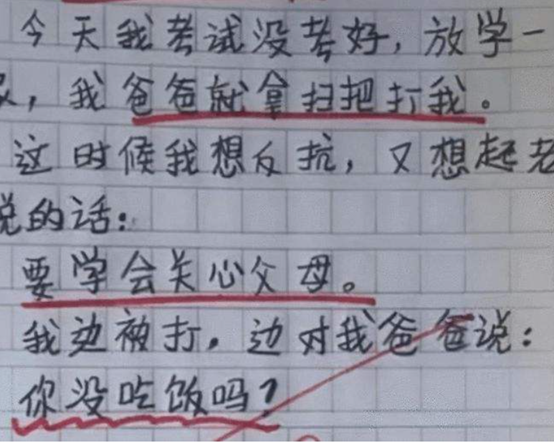 今天我考试没考好，放学一
，我爸爸就拿扫把打我。
这时候我想反抗，又想起老
说的话：
要学会关心父母。
我边被打，边对我爸爸说：
你没吃饭吗？